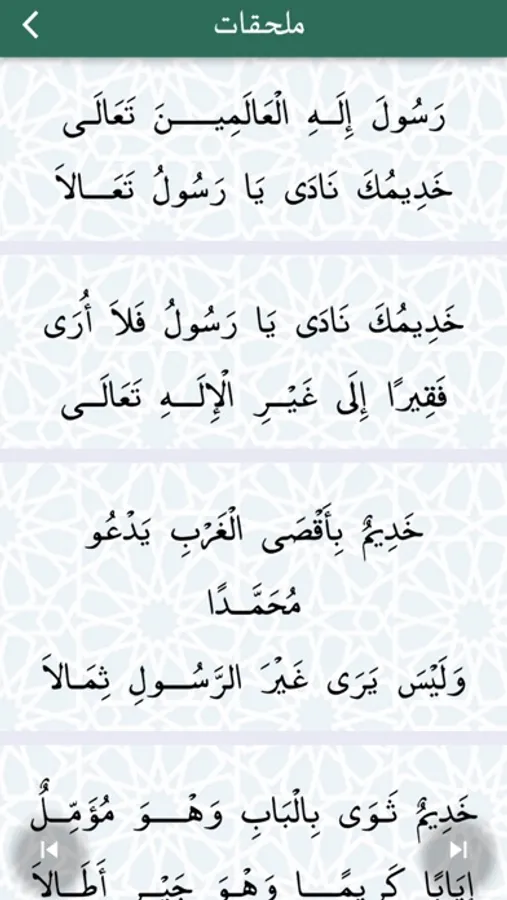 ملحقات
رَسُولَ إِلَـهِ الْعَالَمِيـــنَ تَعَالَـى
خَدِيمُكَ نَادَى يَا رَسُولُ تَعَـــالاَ
خَدِيمُكَ نَادَى يَا رَسُولُ فَلاَ أُرَى
فَقِيرًا إِلَى غَيْـــرِ الْإِلَـــهِ تَعَالَـــى
خَدِيمٌ بِأَقْصَى الْغَرْبِ يَدْعُو
مُحَمَّـــدًا
وَلَيْسَ يَرَى غَيْرَ الرَّسُـــولِ ثِمَـالاَ
خَدِيمٌ ثَـوَى بِالْبَابِ وَهْـــوَ مُؤَمِّـــلٌ
إِيَابًا كَرِيمًـــا وَهْوَ جَيْـــرِ أَطَـــالاَ